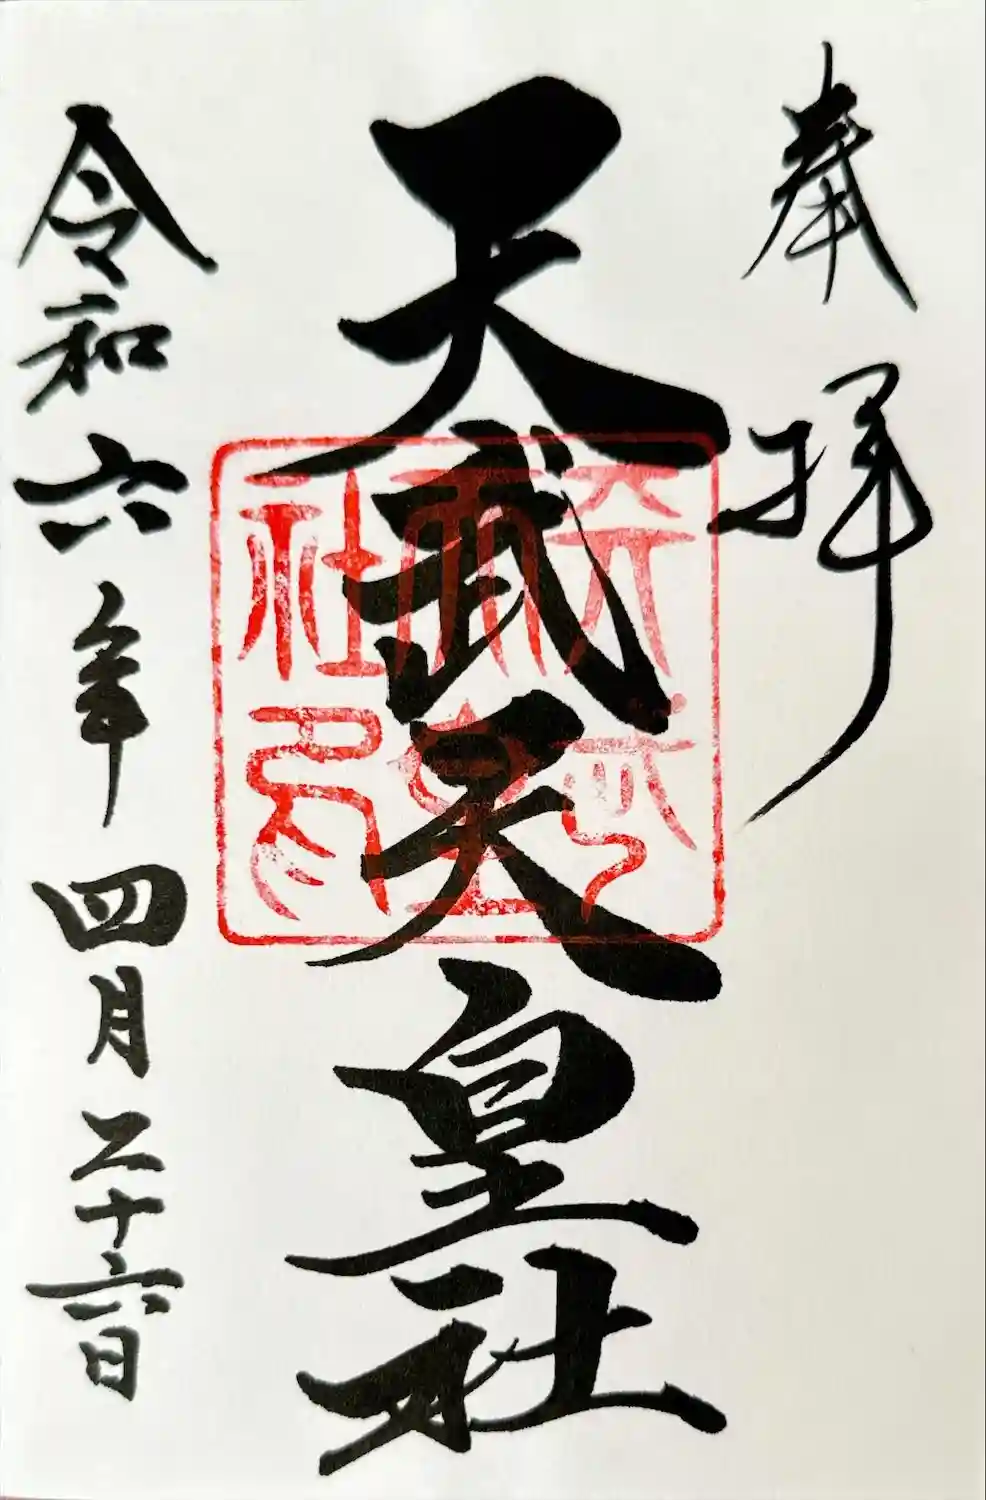 奉拝
天武天皇社
天武
天皇
社印
令和六年四月二十六日